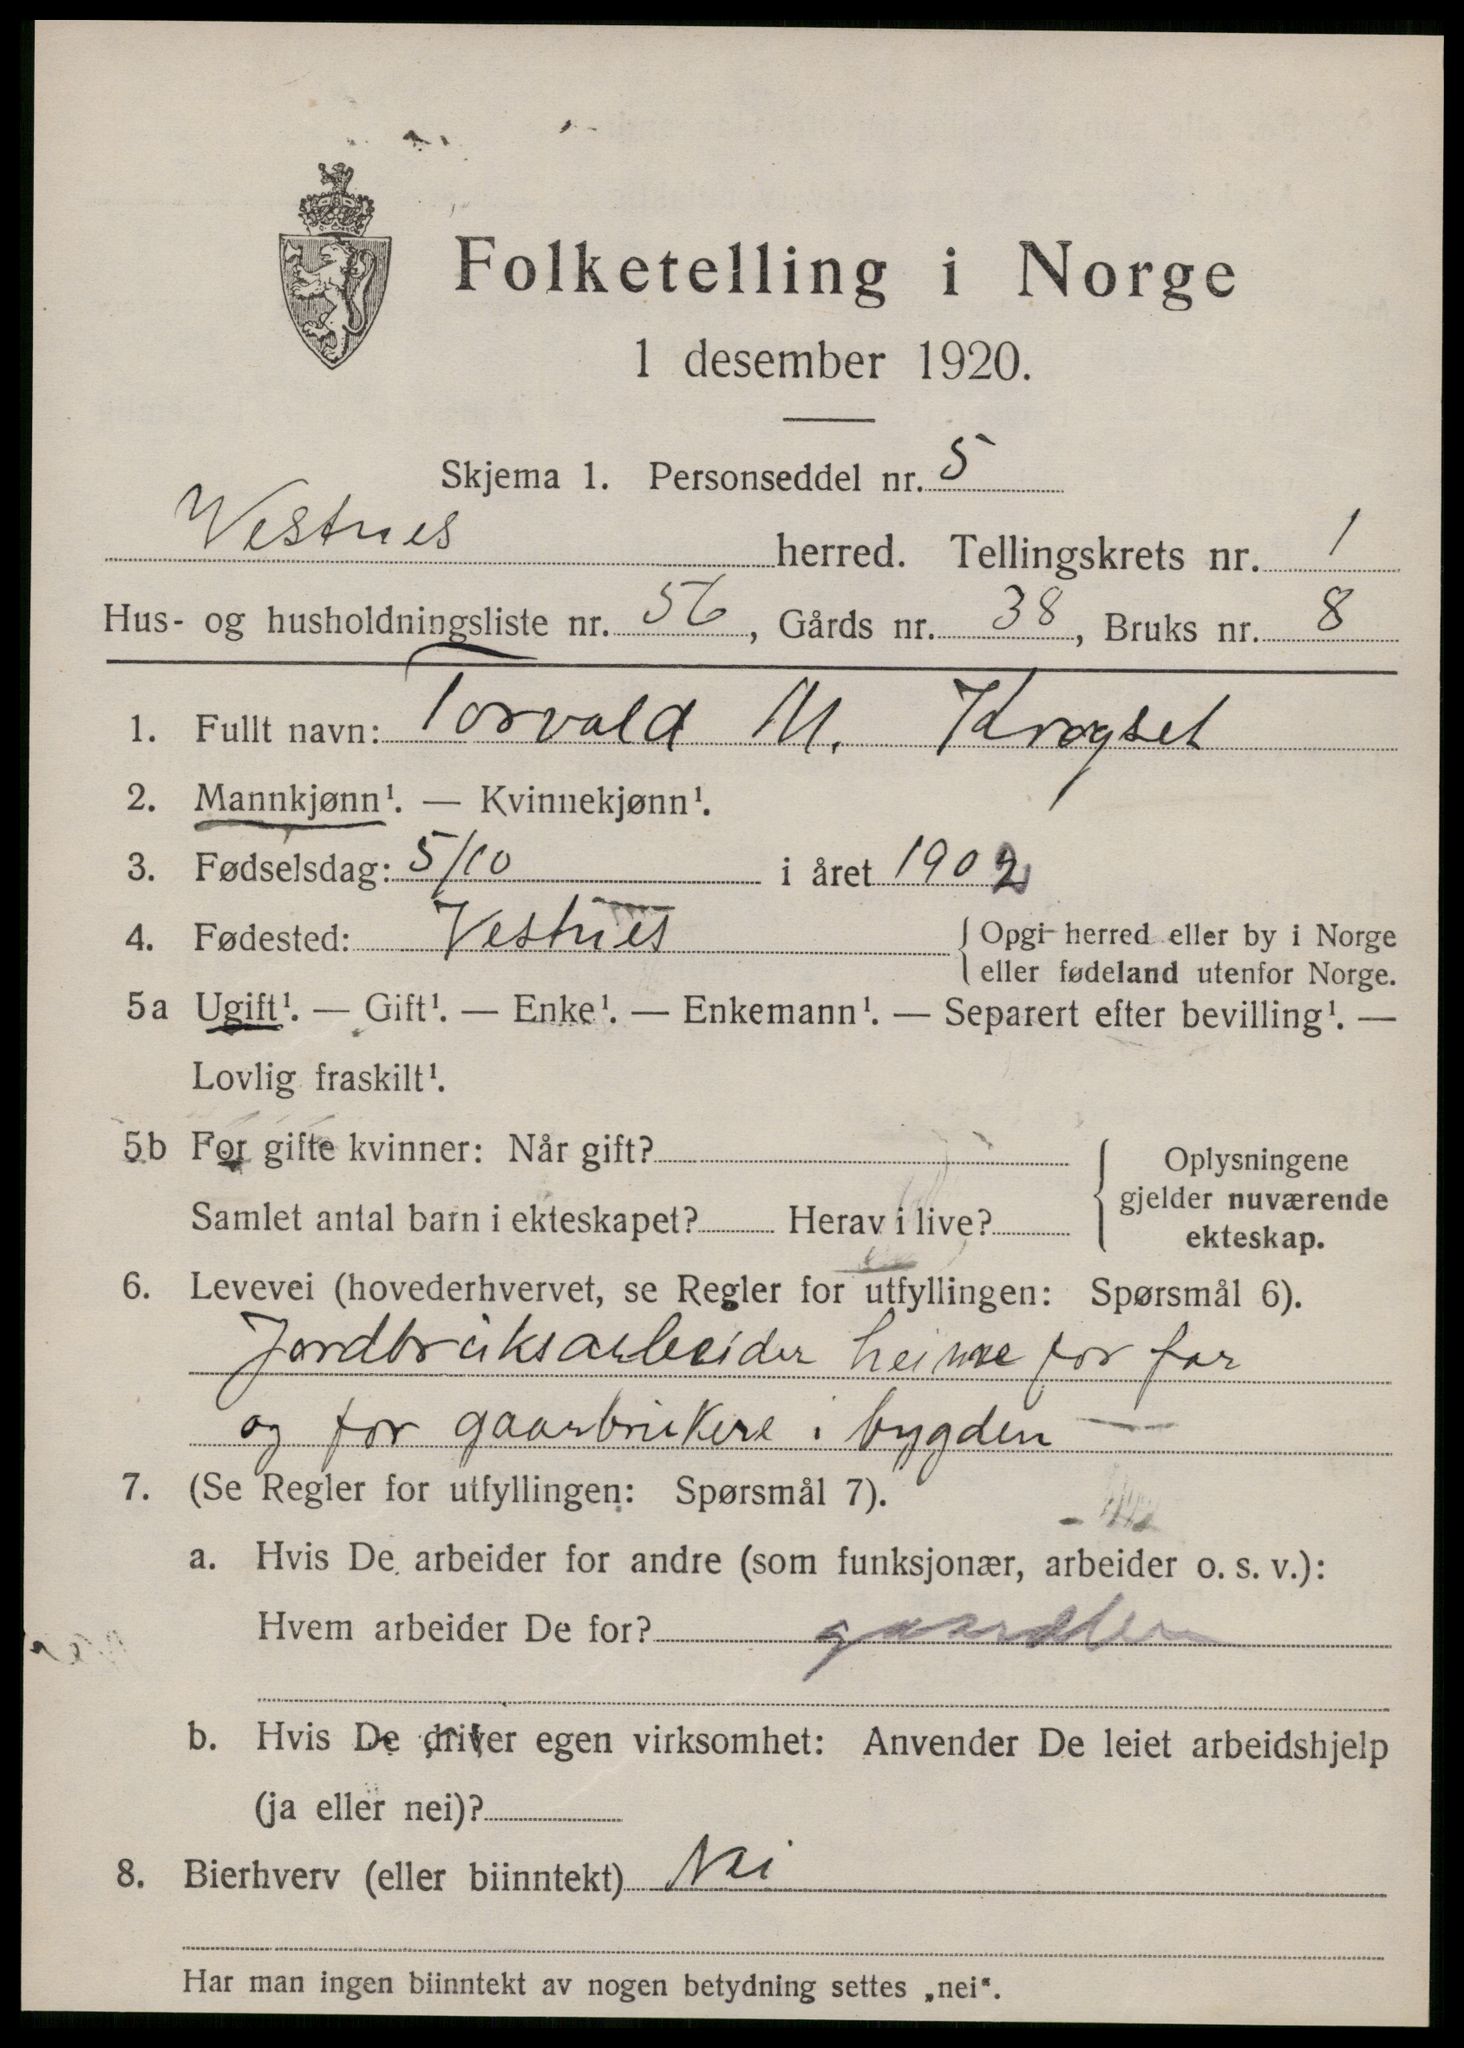 Folketelling i Norge
1 desember 1920.
Skjema 1. Personseddel nr. 5
Vestnes herred. Tellingskrets nr. 1
Hus- og husholdningsliste nr. 56, Gårds nr. 38, Bruks nr. 8
1. Fullt navn: Torvald M. Krogset
2. Mannkjønn¹. — Kvinnekjønn¹.
3. Fødselsdag: 5/10 i året 1902
4. Fødested: Vestnes { Opgi herred eller by i Norge
eller fødeland utenfor Norge.
5a Ugift¹. — Gift¹. — Enke¹. — Enkemann¹. — Separert efter bevilling¹. —
Lovlig fraskilt¹.
5b For gifte kvinner: Når gift?
Samlet antal barn i ekteskapet? Herav i live?
{ Oplysningene
gjelder nuværende
ekteskap.
6. Levevei (hovederhvervet, se Regler for utfyllingen: Spørsmål 6).
Jordbruksarbeider heime for far
og for gaarbrukere i bygden —
7. (Se Regler for utfyllingen: Spørsmål 7).
a. Hvis De arbeider for andre (som funksjonær, arbeider o. s. v.):
Hvem arbeider De for?
b. Hvis De driver egen virksomhet: Anvender De leiet arbeidshjelp
(ja eller nei)?
8. Bierhverv (eller biinntekt) Nei
Har man ingen biinntekt av nogen betydning settes „nei“.